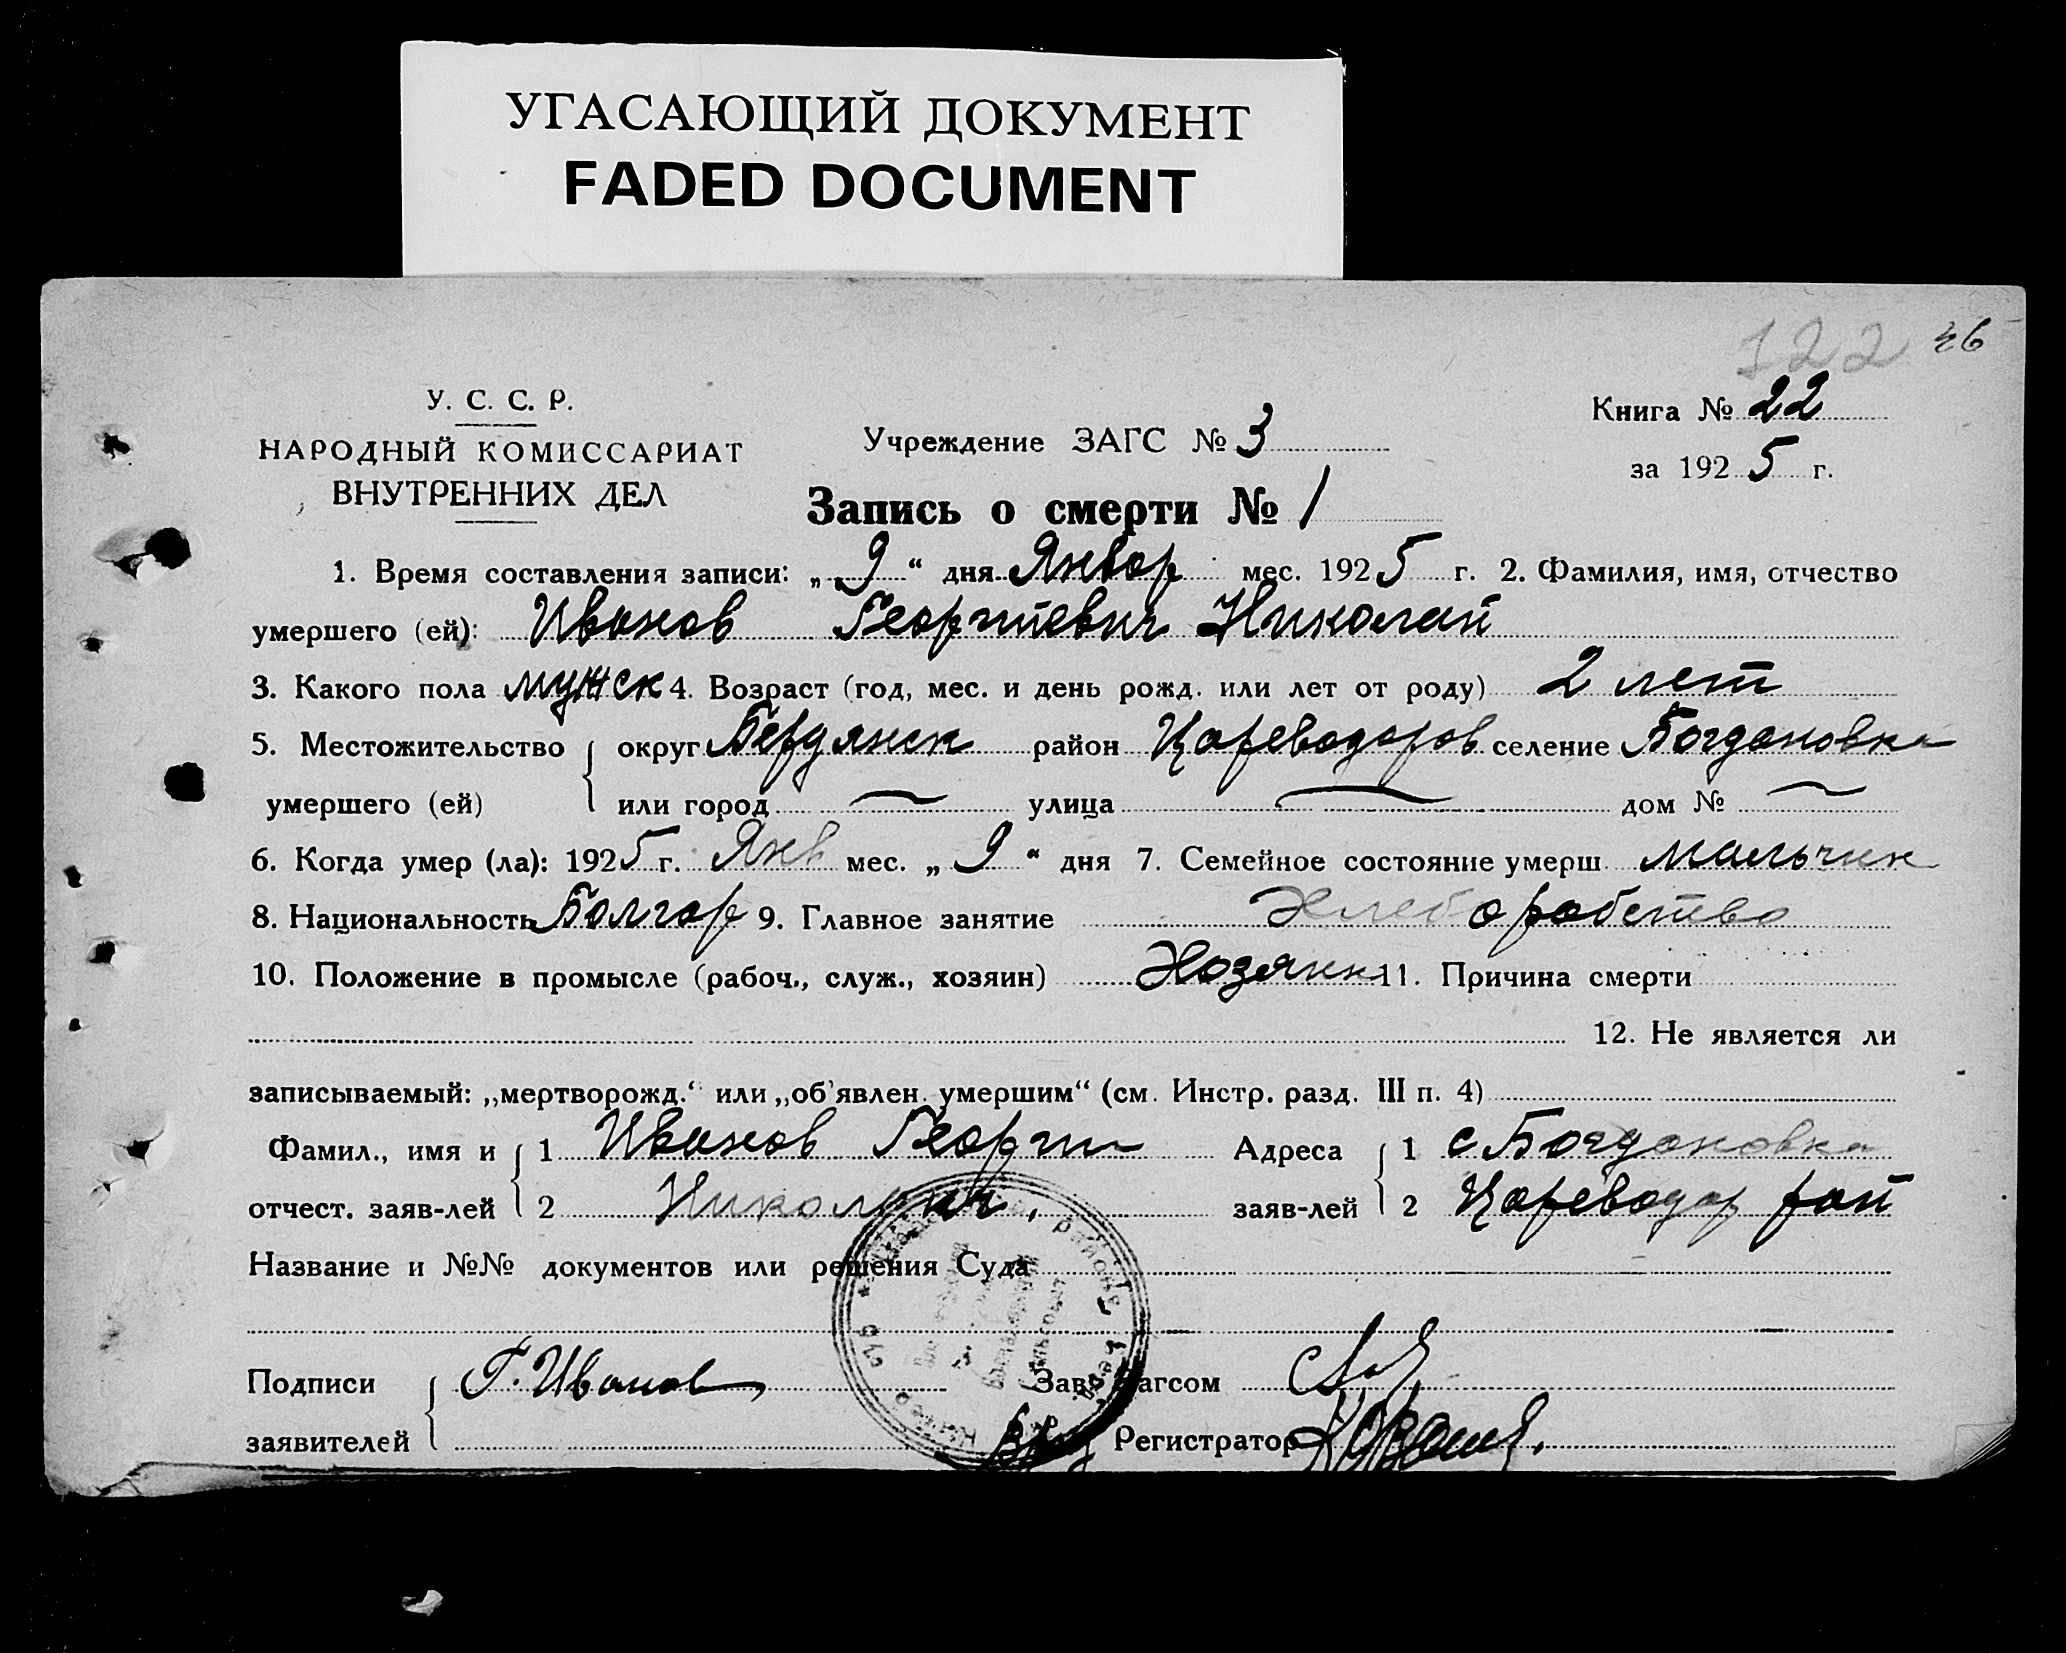 УГАСАЮЩИЙ ДОКУМЕНТ
FADED DOCUMENT
122 46
У. С. С. Р.
НАРОДНЫЙ КОМИССАРИАТ
ВНУТРЕННИХ ДЕЛ
Учреждение ЗАГС № 3
Книга № 22
за 1925 г.
Запись о смерти № 1
1. Время составления записи: „9“ дня Январ мес. 1925 г. 2. Фамилия, имя, отчество
умершего (ей): Иванов Георгиевич Николай
3. Какого пола мужск 4. Возраст (год, мес. и день рожд. или лет от роду) 2 лет
5. Местожительство округ Бердянск район Цареводаров селение Богдановка
умершего (ей) или город — улица — дом № —
6. Когда умер (ла): 1925 г. Янв мес. „9“ дня 7. Семейное состояние умерш. мальчик
8. Национальность Болгар 9. Главное занятие Хлеборобство
10. Положение в промысле (рабоч., служ., хозяин) Хозяин 11. Причина смерти
12. Не является ли
записываемый: „мертворожд.“ или „об'явлен. умершим“ (см. Инстр. разд. III п. 4)
Фамил., имя и 1 Иванов Георги Адреса 1 с Богдановка
отчест. заяв-лей 2 Николаич. заяв-лей 2 Цареводар рай
Название и №№ документов или решения Суда
Подписи Г. Иванов Зав. Загсом
заявителей Регистратор